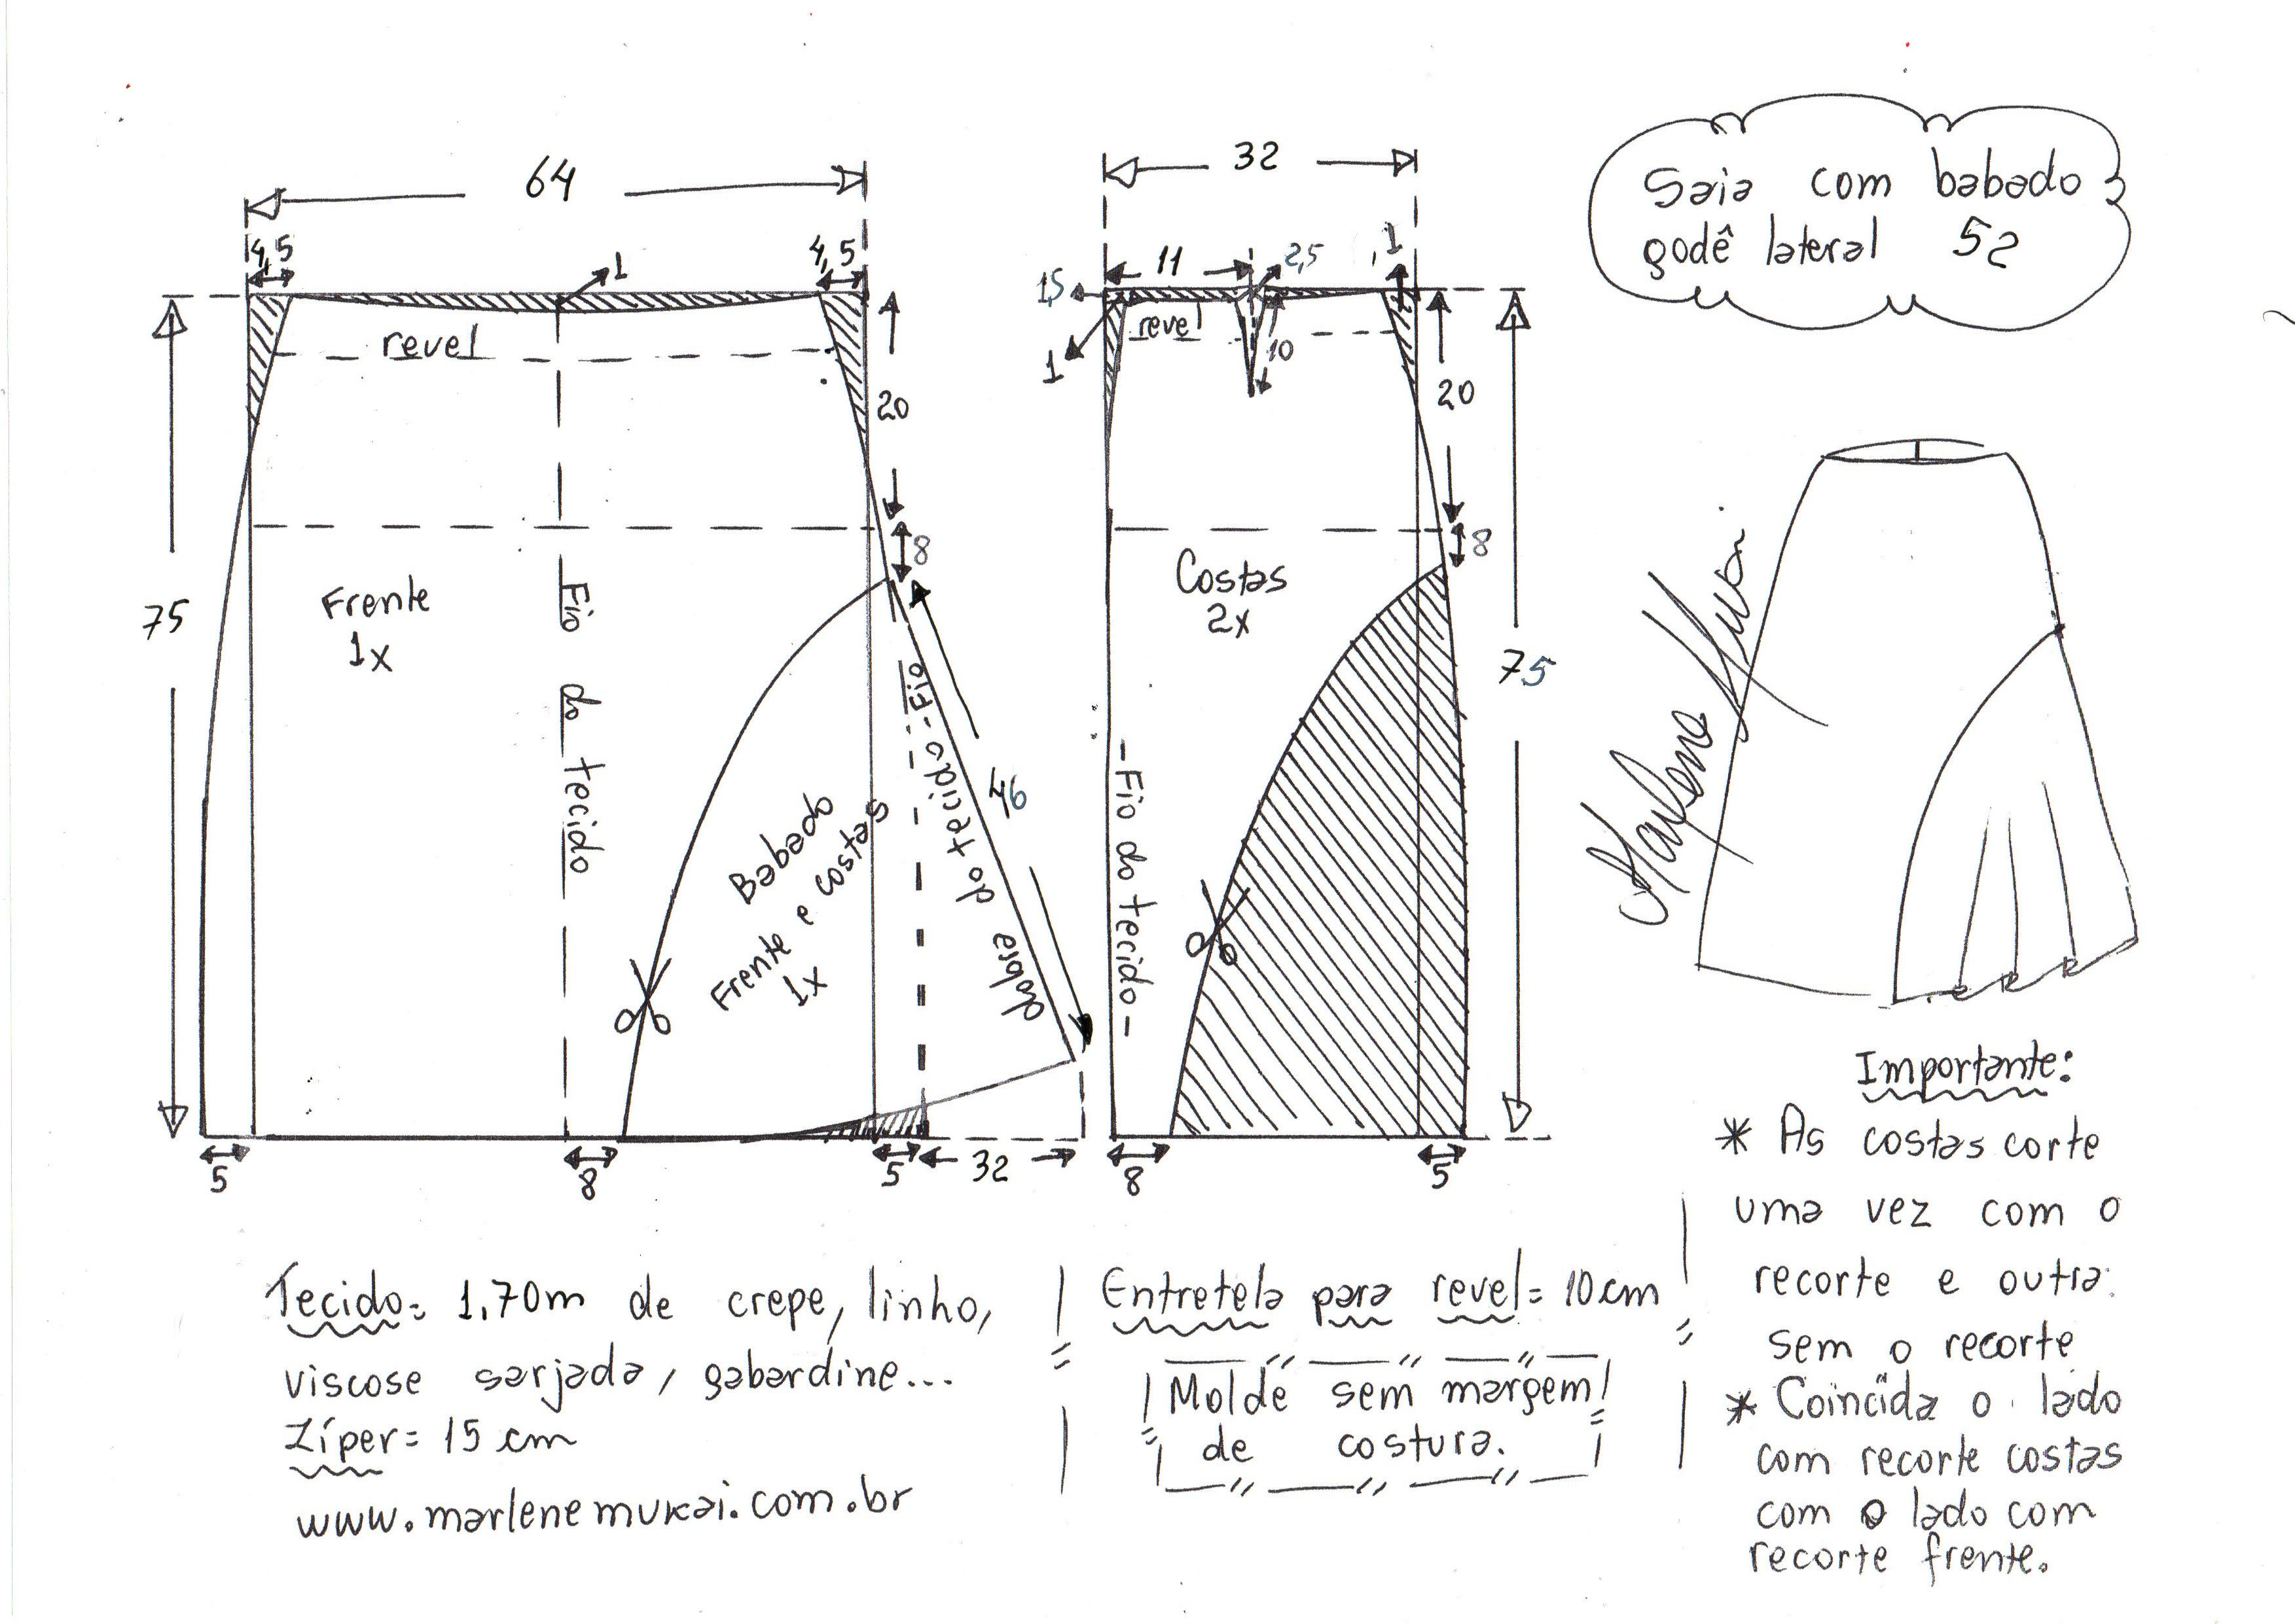 64
4,5
4,5
1
revel
20
8
75
Frente
1x
Fio do tecido
Babado
Frente e costas
1x
Fio do tecido
dobre
46
5
8
5
32
32
11
2,5
1
1,5
revel
1
10
20
8
Costas
2x
75
Fio do tecido
8
5
Saia com babado
godê lateral 52
Marlene Mukai
Importante:
* As costas corte
uma vez com o
recorte e outra
sem o recorte
* Coincida o lado
com recorte costas
com o lado com
recorte frente.
Tecido= 1,70m de crepe, linho,
viscose sarjada, gabardine...
Zíper= 15 cm
www.marlenemukai.com.br
Entretela para revel= 10 cm
Molde sem margem
de costura.